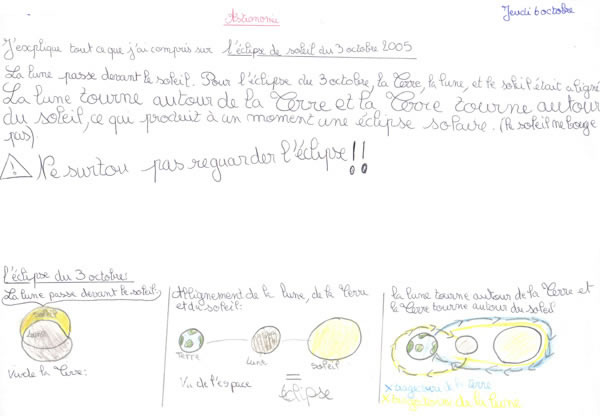 Astronomie
Jeudi 6 octobre
J'explique tout ce que j'ai compris sur l'éclipse de soleil du 3 octobre 2005
La lune passe devant le soleil. Pour l'éclipse du 3 octobre, la Terre, la lune, et le soleil était aligné
La lune tourne autour de la Terre et la Terre tourne autour
du soleil, ce qui produit à un moment une éclipse solaire. (le soleil ne bouge
pas)
Ne surtou pas reguarder l'éclipse !!
l'éclipse du 3 octobre:
La lune passe devant le soleil:
soleil
lune
Vu de la Terre:
Allignement de la lune, de la Terre
et du soleil:
Terre
Lune
soleil
Vu de l'espace
=
éclipse
la lune tourne autour de la Terre et
la Terre tourne autour du soleil
x trajectoire de la terre
x trajectoires de la lune